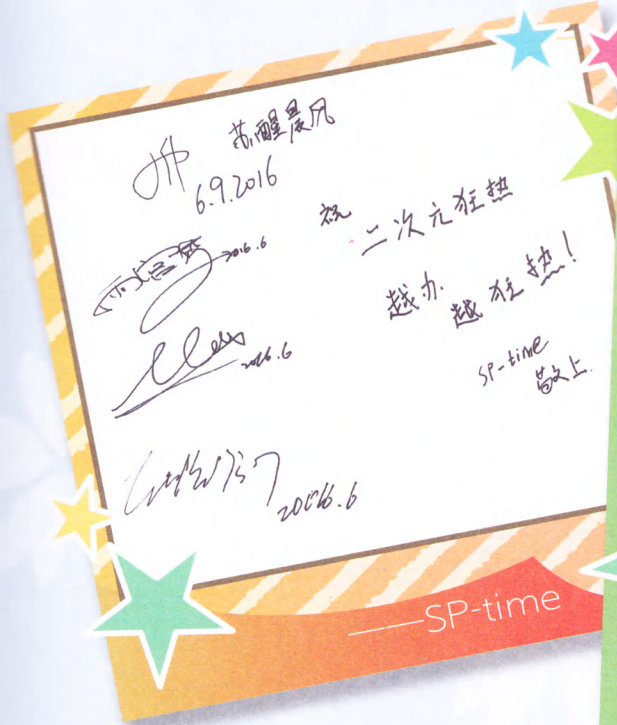 苏醒晨风
6.9.2016
2016.6
2016.6
2016.6
祝
二次元狂热
越办
越狂热!
SP-time
敬上
——SP-time